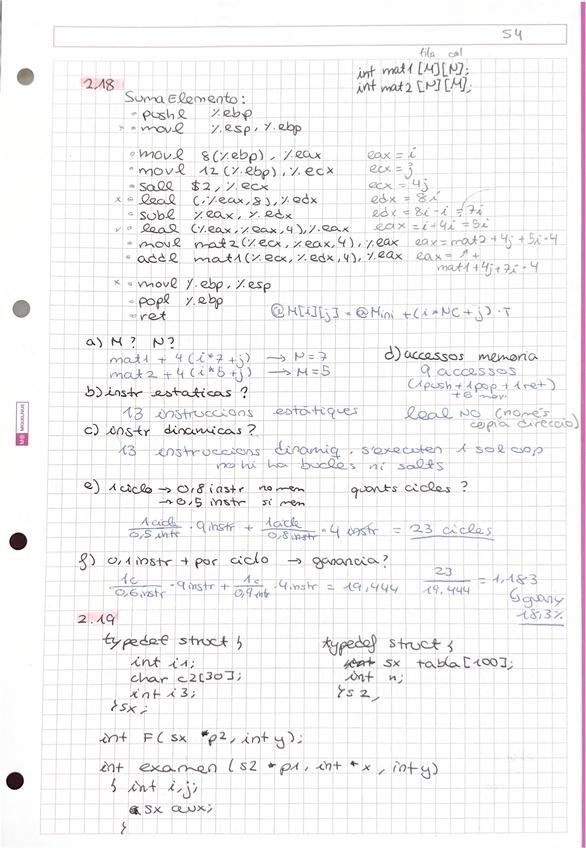 54
fila col
int mat1 [M][N];
int mat2 [N][M];
2.18
SumaElemento:
pushl %ebp
movl %esp, %ebp
movl 8(%ebp), %eax eax = i
movl 12(%ebp), %ecx ecx = j
sall $2, %ecx ecx = 4j
leal (,%eax,8), %edx edx = 8i
subl %eax, %edx edx = 8i - i = 7i
leal (%eax,%eax,4), %eax eax = i+4i = 5i
movl mat2(%ecx,%eax,4), %eax eax = mat2 + 4j + 5i·4
addl mat1(%ecx,%edx,4), %eax eax = ↑ +
mat1+4j+7i·4
movl %ebp, %esp
popl %ebp
ret
@M[i][j] = @Mini + (i*NC+j)·T
a) M? N?
mat1 + 4(i*7+j) → N=7
mat2 + 4(i*5+j) → M=5
d) accessos memoria
9 accessos
(1push+1pop+1ret)
+6 mov
leal NO (només
copia direcció)
b) instr estaticas?
13 instruccions estàtiques
c) instr dinamicas?
13 instruccions dinamiq, s'executen 1 sol cop
no hi ha bucles ni salts
e) 1 ciclo → 0,8 instr no mem quants cicles?
→ 0,5 instr si mem
1 cicle / 0,5 intr · 9 instr + 1 cicle / 0,8 instr · 4 instr = 23 cicles
f) 0,1 instr + por ciclo → ganancia?
1c / 0,6 instr · 9 instr + 1c / 0,9 intr · 4 instr = 19,444
23 / 19,444 = 1,183
guany
18,3%
2.19
typedef struct {
int i1;
char c2[30];
int i3;
} sx;
typedef struct {
sx tabla[100];
int n;
} s2;
int F(sx *p2, int y);
int examen (s2 *p1, int *x, int y)
{ int i,j;
sx aux;
}